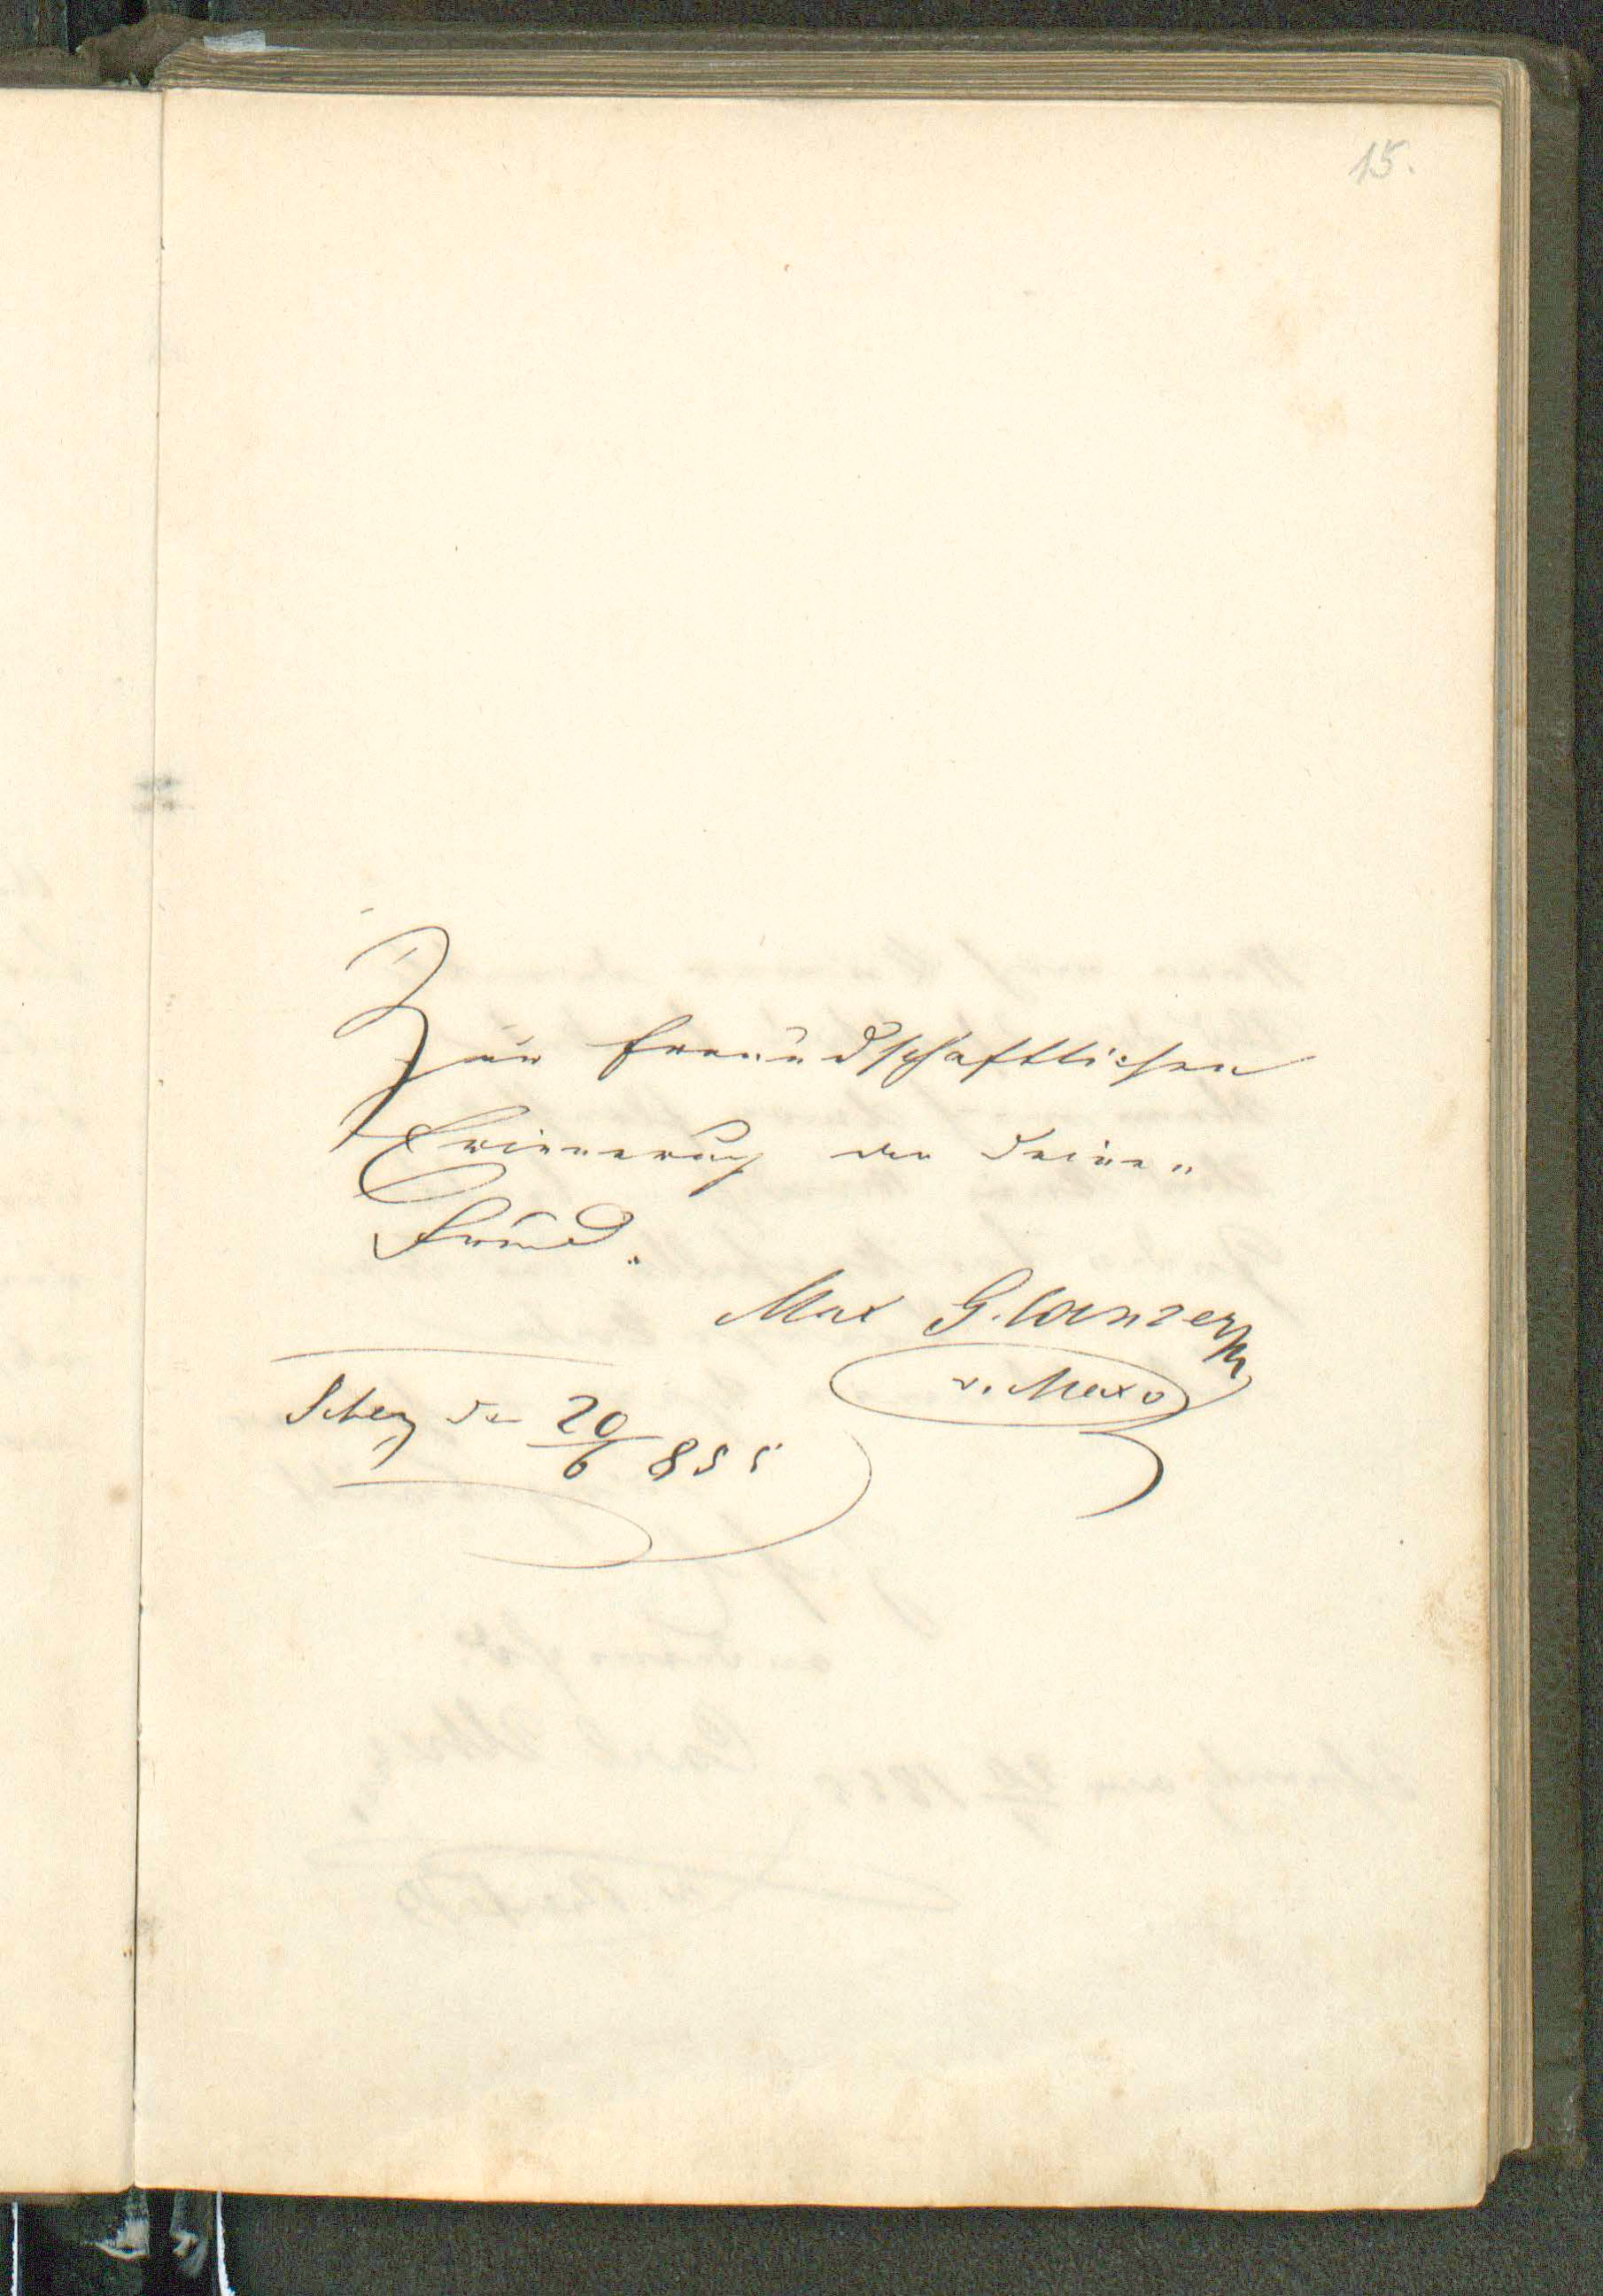 15.
Zur freundschaftlichen
Erinnerung an Deinen
Freund.
Max G. Canzer
v. Maxo
den 20/6 855